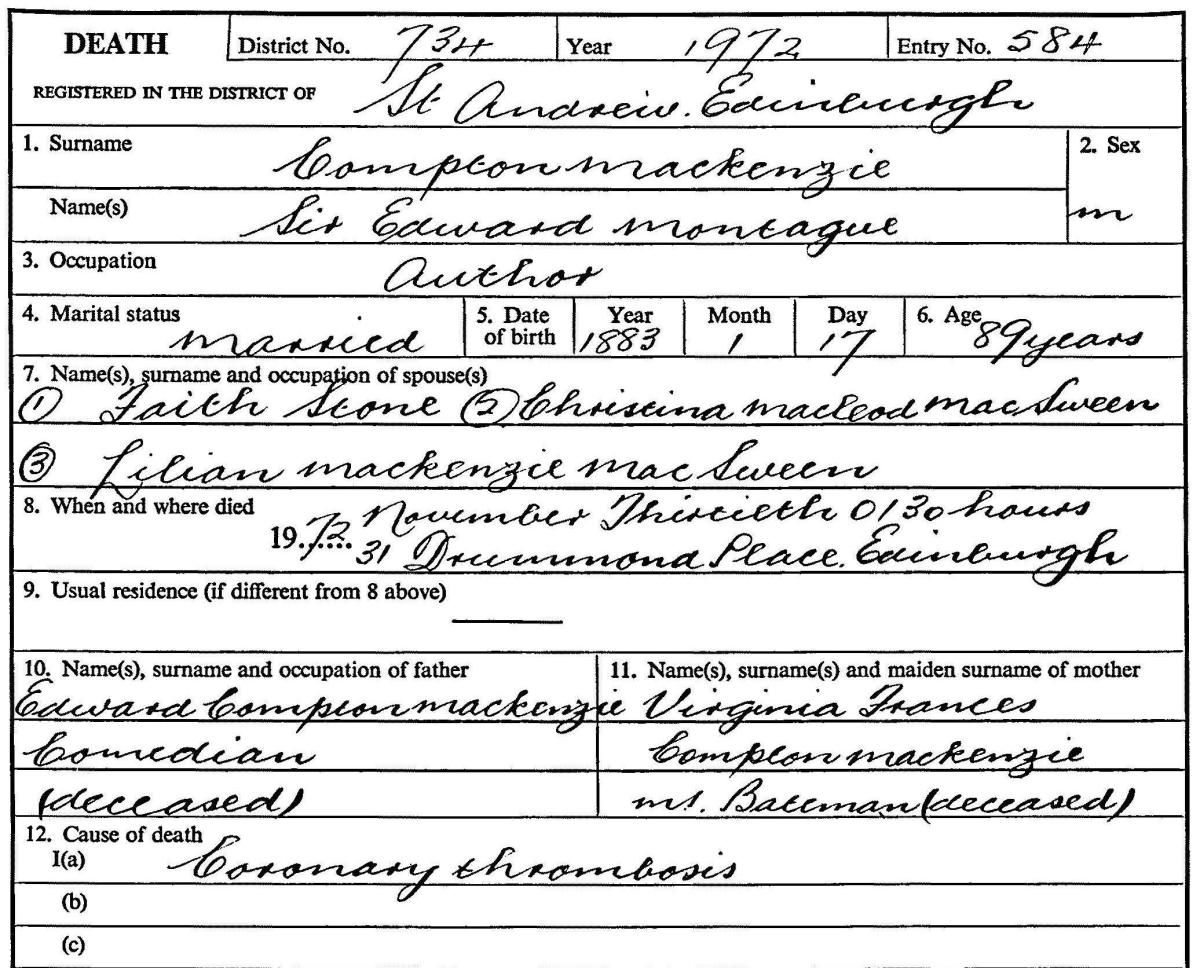 DEATH District No. 734 Year 1972 Entry No. 584
REGISTERED IN THE DISTRICT OF St Andrew. Edinburgh
1. Surname Compton Mackenzie 2. Sex
Name(s) Sir Edward Montague m
3. Occupation Author
4. Marital status Married 5. Date of birth Year 1883 Month 1 Day 17 6. Age 89 years
7. Name(s), surname and occupation of spouse(s)
① Faith Stone ② Christina Macleod MacSween
③ Lilian Mackenzie MacSween
8. When and where died 1972 November Thirtieth 0130 hours
31 Drummond Place. Edinburgh
9. Usual residence (if different from 8 above)
10. Name(s), surname and occupation of father
Edward Compton Mackenzie
Comedian
(deceased)
11. Name(s), surname(s) and maiden surname of mother
Virginia Frances
Compton Mackenzie
m.s. Bateman (deceased)
12. Cause of death
I(a) Coronary thrombosis
(b)
(c)